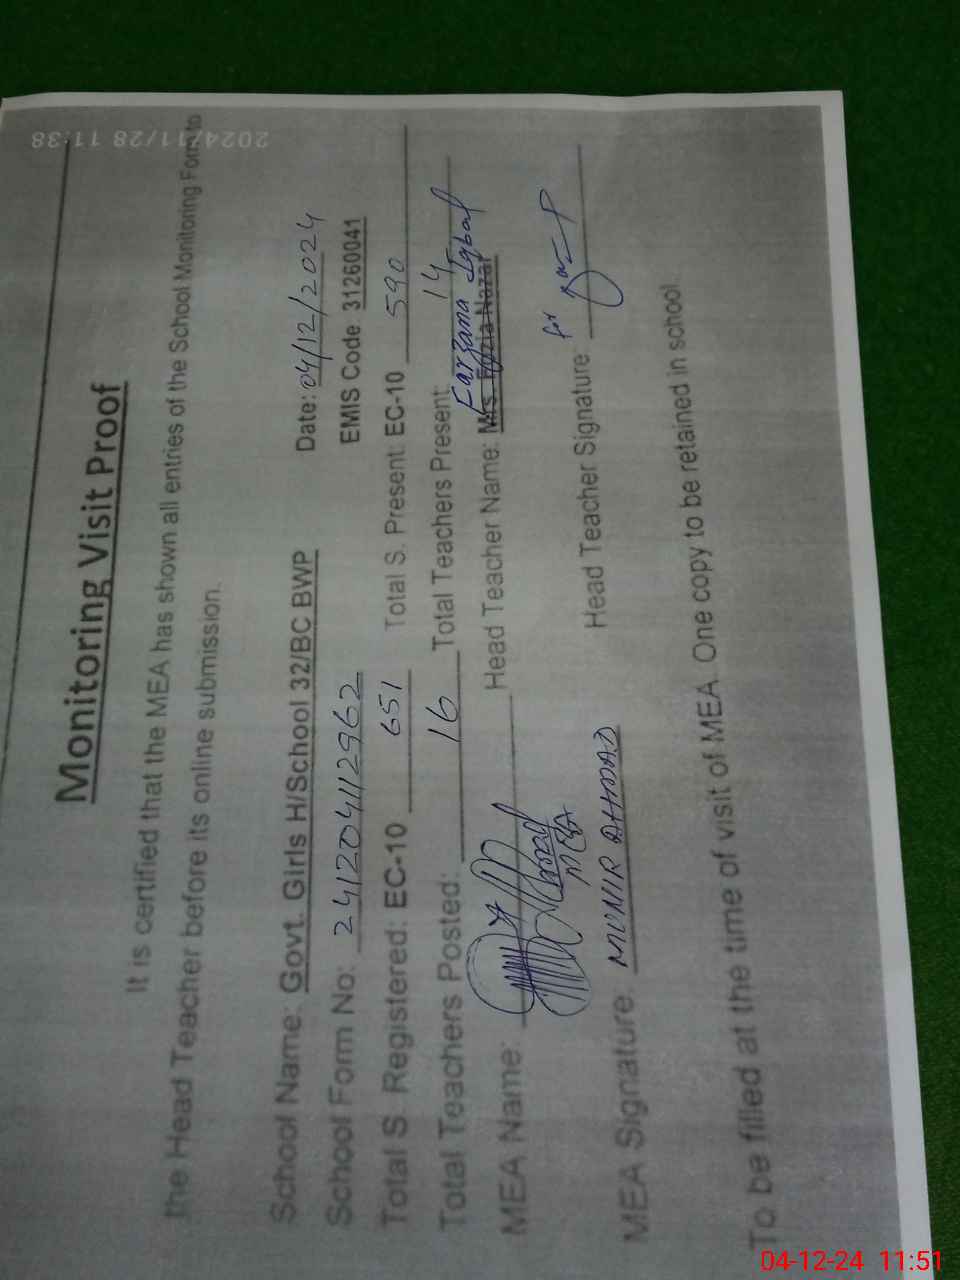 2024/11/28 11:38
Monitoring Visit Proof
It is certified that the MEA has shown all entries of the School Monitoring Form to
the Head Teacher before its online submission.
School Name: Govt. Girls H/School 32/BC BWP Date: 04/12/2024
School Form No: 241204112962 EMIS Code 31260041
Total S Registered: EC-10 651 Total S. Present: EC-10 590
Total Teachers Posted: 16 Total Teachers Present: 14
Farzana Iqbal
MEA Name: Head Teacher Name: Mrs. Fozia Nazar
MEA
MEA Signature: MUNIR AHMAD Head Teacher Signature: for
To be filled at the time of visit of MEA. One copy to be retained in school.
04-12-24 11:51